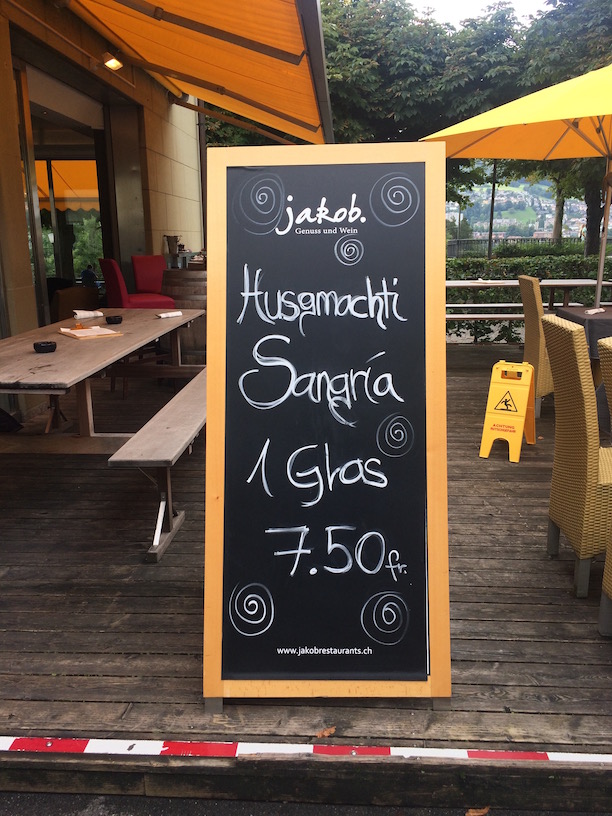 jakob.
Genuss und Wein
Husgmachti
Sangría
1 Glas
7.50 fr.
www.jakobrestaurants.ch
ACHTUNG
RUTSCHGEFAHR